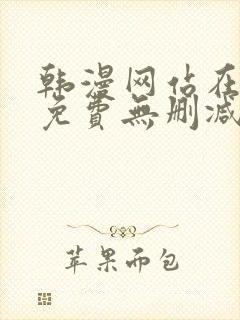 韩漫网估在
免費無删减
苹果而包